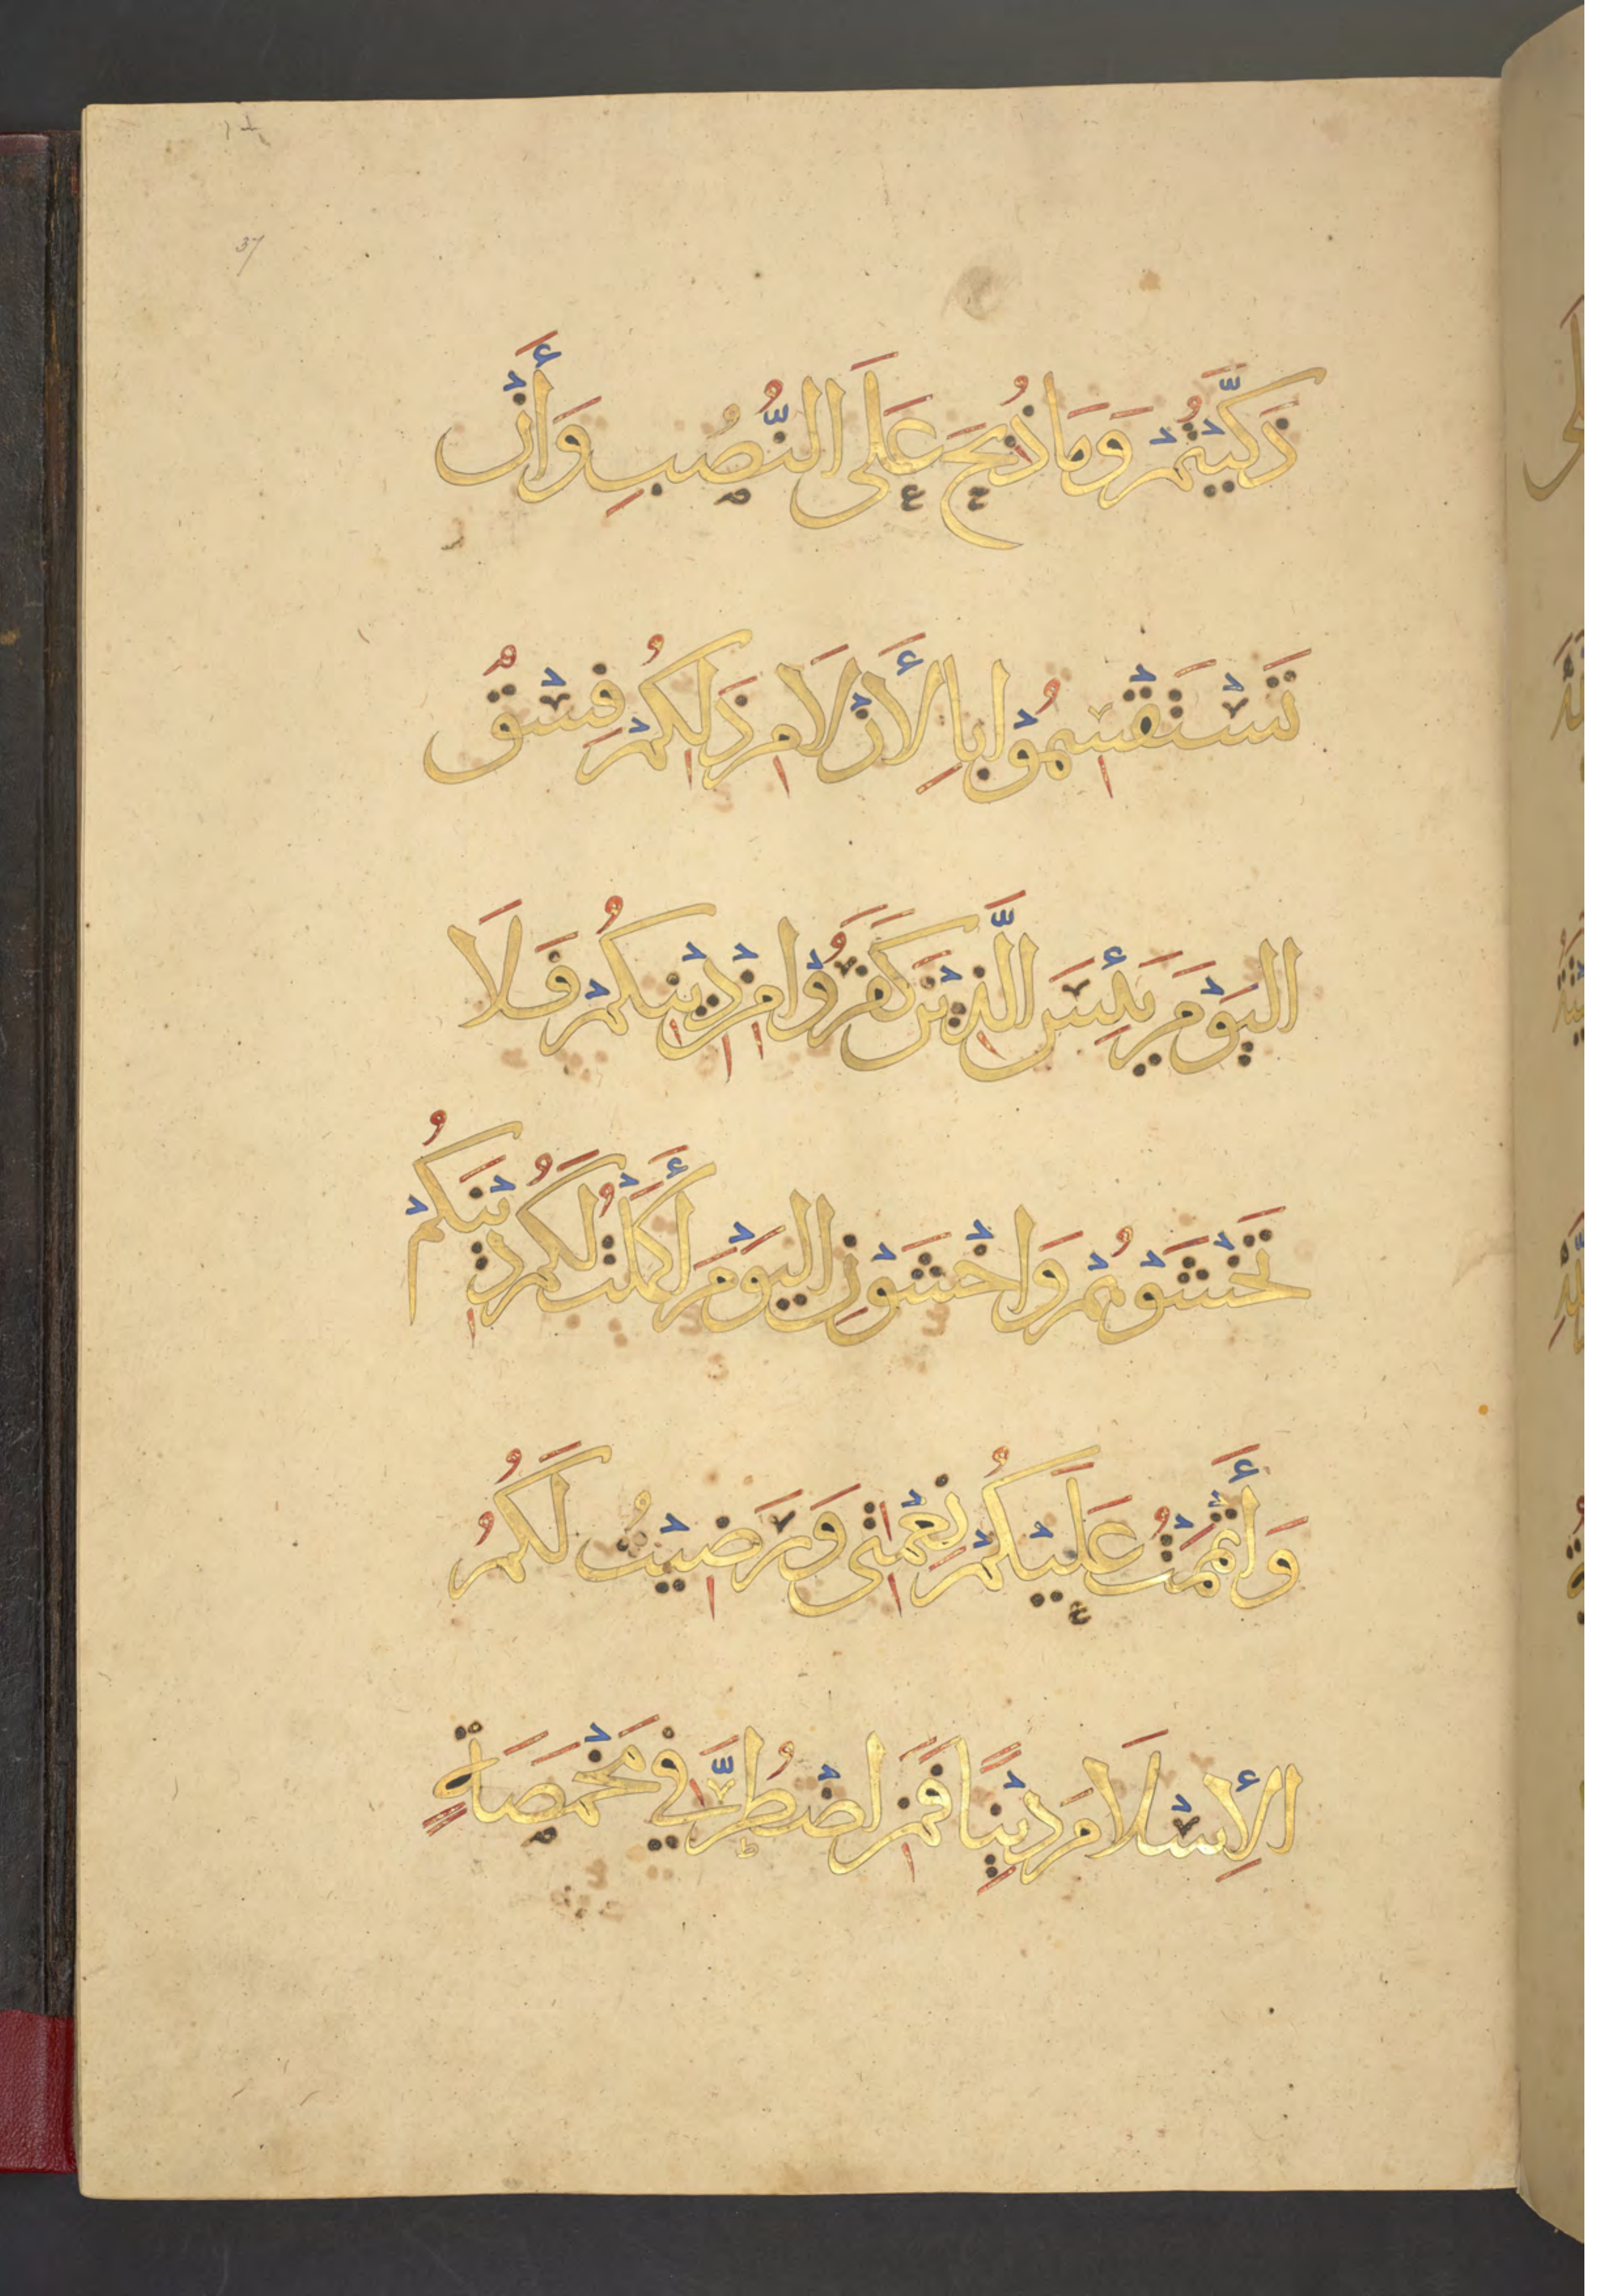 37
ذَكَّيْتُمْ وَمَا ذُبِحَ عَلَى النُّصُبِ وَأَنْ
تَسْتَقْسِمُوْا بِالأَزْلَامِ ذَلِكُمْ فِسْقٌ
اليَوْمَ يَئِسَ الَّذِيْنَ كَفَرُوْا مِنْ دِيْنِكُمْ فَلَا
تَخْشَوْهُمْ وَاخْشَوْنِ اليَوْمَ أَكْمَلْتُ لَكُمْ دِيْنَكُمْ
وَأَتْمَمْتُ عَلَيْكُمْ نِعْمَتِى وَرَضِيْتُ لَكُمُ
الإِسْلَامَ دِيْنًا فَمَنِ اضْطُرَّ فِي مَخْمَصَةٍ